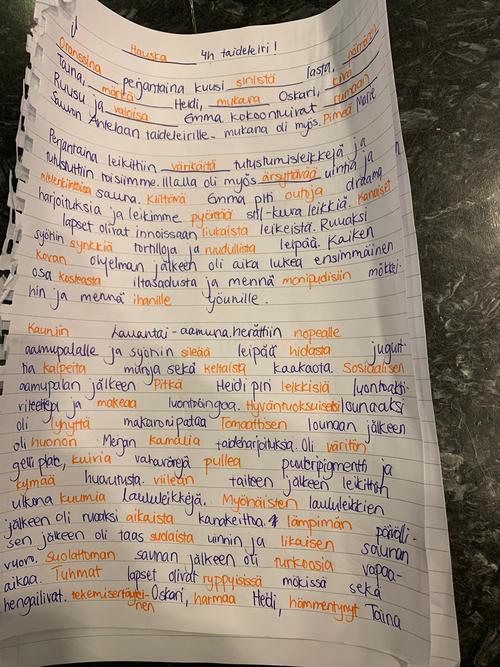 Hauska 4h taideleiri!
Oranssina perjantaina kuusi sinistä lasta,
Taina, märkä Heidi, mukava Oskari,
Ruusu ja valmis Emma kokoontuivat rumaan
Saunn Antelaan taideleirille - mukana oli myös. Pimeä
Perjantaina leikittiin värikäitä tutustumisleikkejä ja
tutustuttiin toisiimme. Illalla oli myös ärsyttävää uintia ja
sauna. Kiiltävä Emma piti outoja draama
harjoituksia ja leikimme pyöreää leikkiä. Kanaiset
lapset olivat innoissaan liukaista leikeistä. Ruuaksi
syötiin synkkiä tortilloja ja ruudullista leipää. Kaiken
kovan ohjelman jälkeen oli aika lukea ensimmäinen
osa kosteasta iltasadusta ja mennä monipuolisiin mökkei-
hin ja mennä ihanille yöunille.
Kauniin Lauantai-aamuna herättiin nopealle
aamupalalle ja syötiin sileää leipää hidasta jugurt-
tia kalpeita munia sekä keltaista kaakaota. Sosiaalisen
aamupalan jälkeen Pitkä Heidi piti leikkisiä luontoakti-
viteetteja ja makeaa luontobingoa. Hyväntuoksuiseksi lounaaksi
oli lyhyttä makaronipataa Tomaattisen lounaan jälkeen
oli huonon Mergan kamalia taideharjoituksia. Oli väritön
gelli plate, kuivia vahavärejä pullea puuteripigmentti ja
kylmää huovutusta. viileän taiteen jälkeen leikittiin
ulkona kuumia laululeikkejä. Myöhäisten laululeikkien
jälkeen oli ruoaksi aikaista kanakeittoa. lämpimän päivälli-
sen jälkeen oli taas suolaista uinnin ja likaisen saunan
vuoro. Suolattoman saunan jälkeen oli turkoosia vapaa-
aikaa. Tuhmat lapset olivat ryppyisissä mökissä sekä
hengailivat. Oskari, harmaa Heidi, hämmentynyt Taina